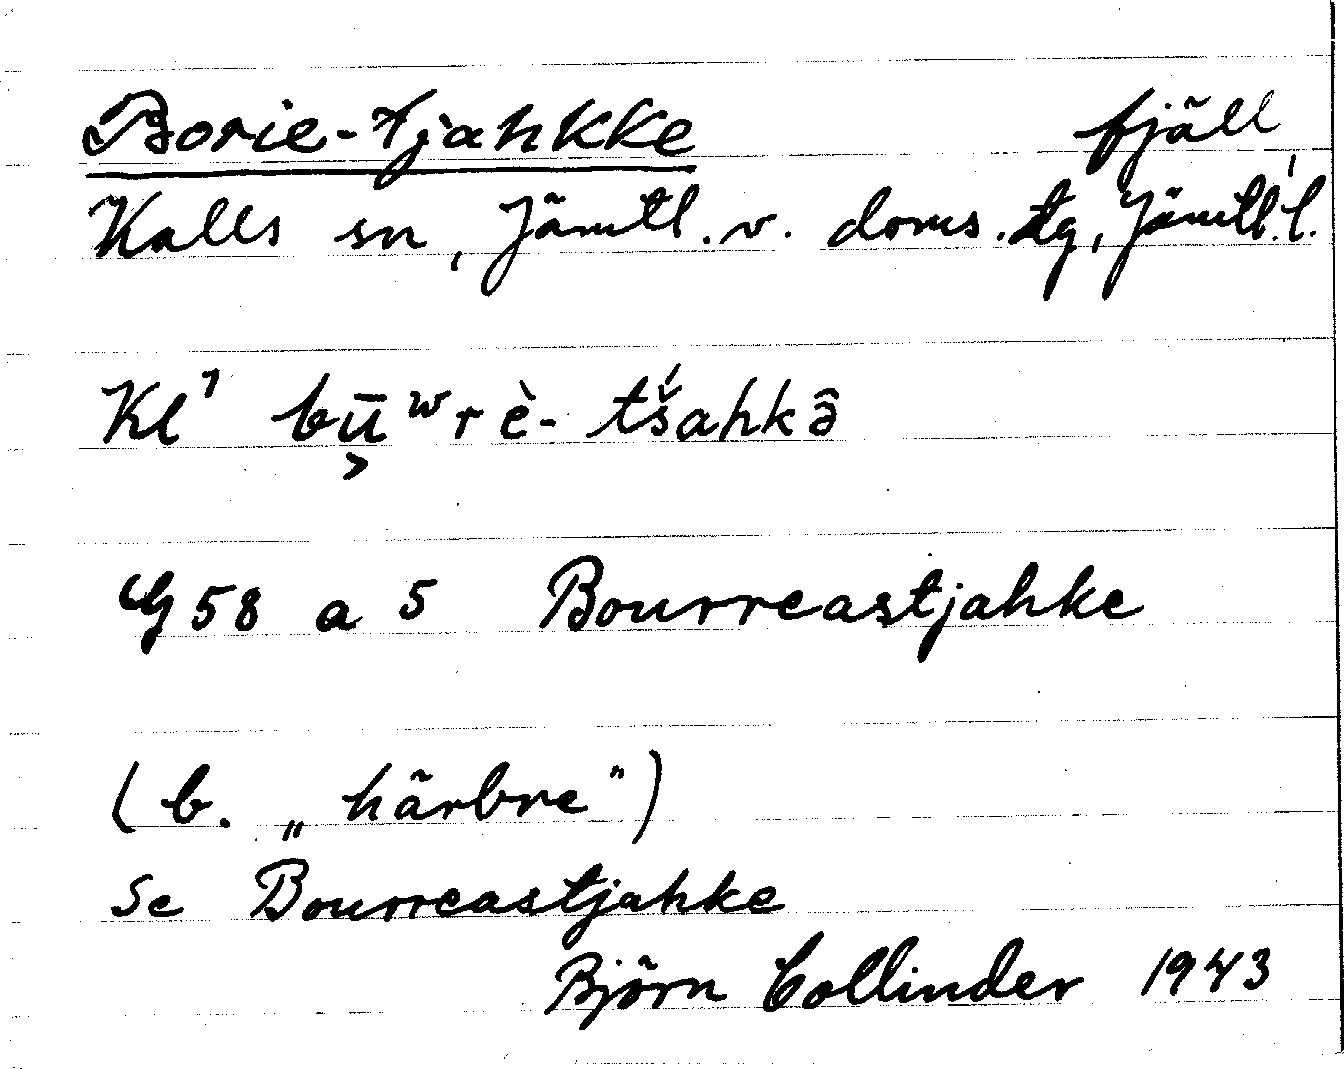 Borie-tjahkke fjäll
Kalls sn, Jämtl. v. doms. tg, Jämtl. l.
Kl⁷ bū͔ʷrè- tš́ahkə̂
G 58 a 5 Bourreastjahke
(b. „härbre")
Se Bourreastjahke
Björn Collinder 1943